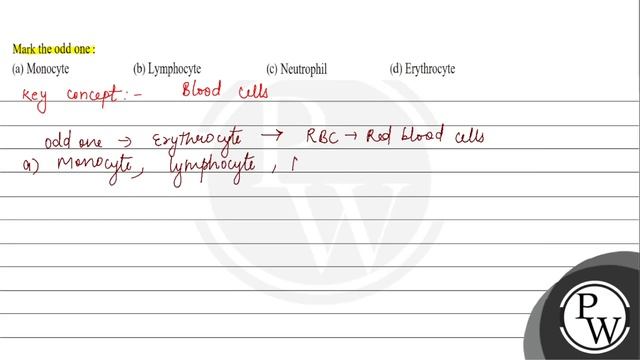 Mark the odd one :
(a) Monocyte (b) Lymphocyte (c) Neutrophil (d) Erythrocyte
Key concept:- Blood cells
odd one → Erythrocyte → RBC → Red blood cells
a) Monocyte, lymphocyte,
PW
PW